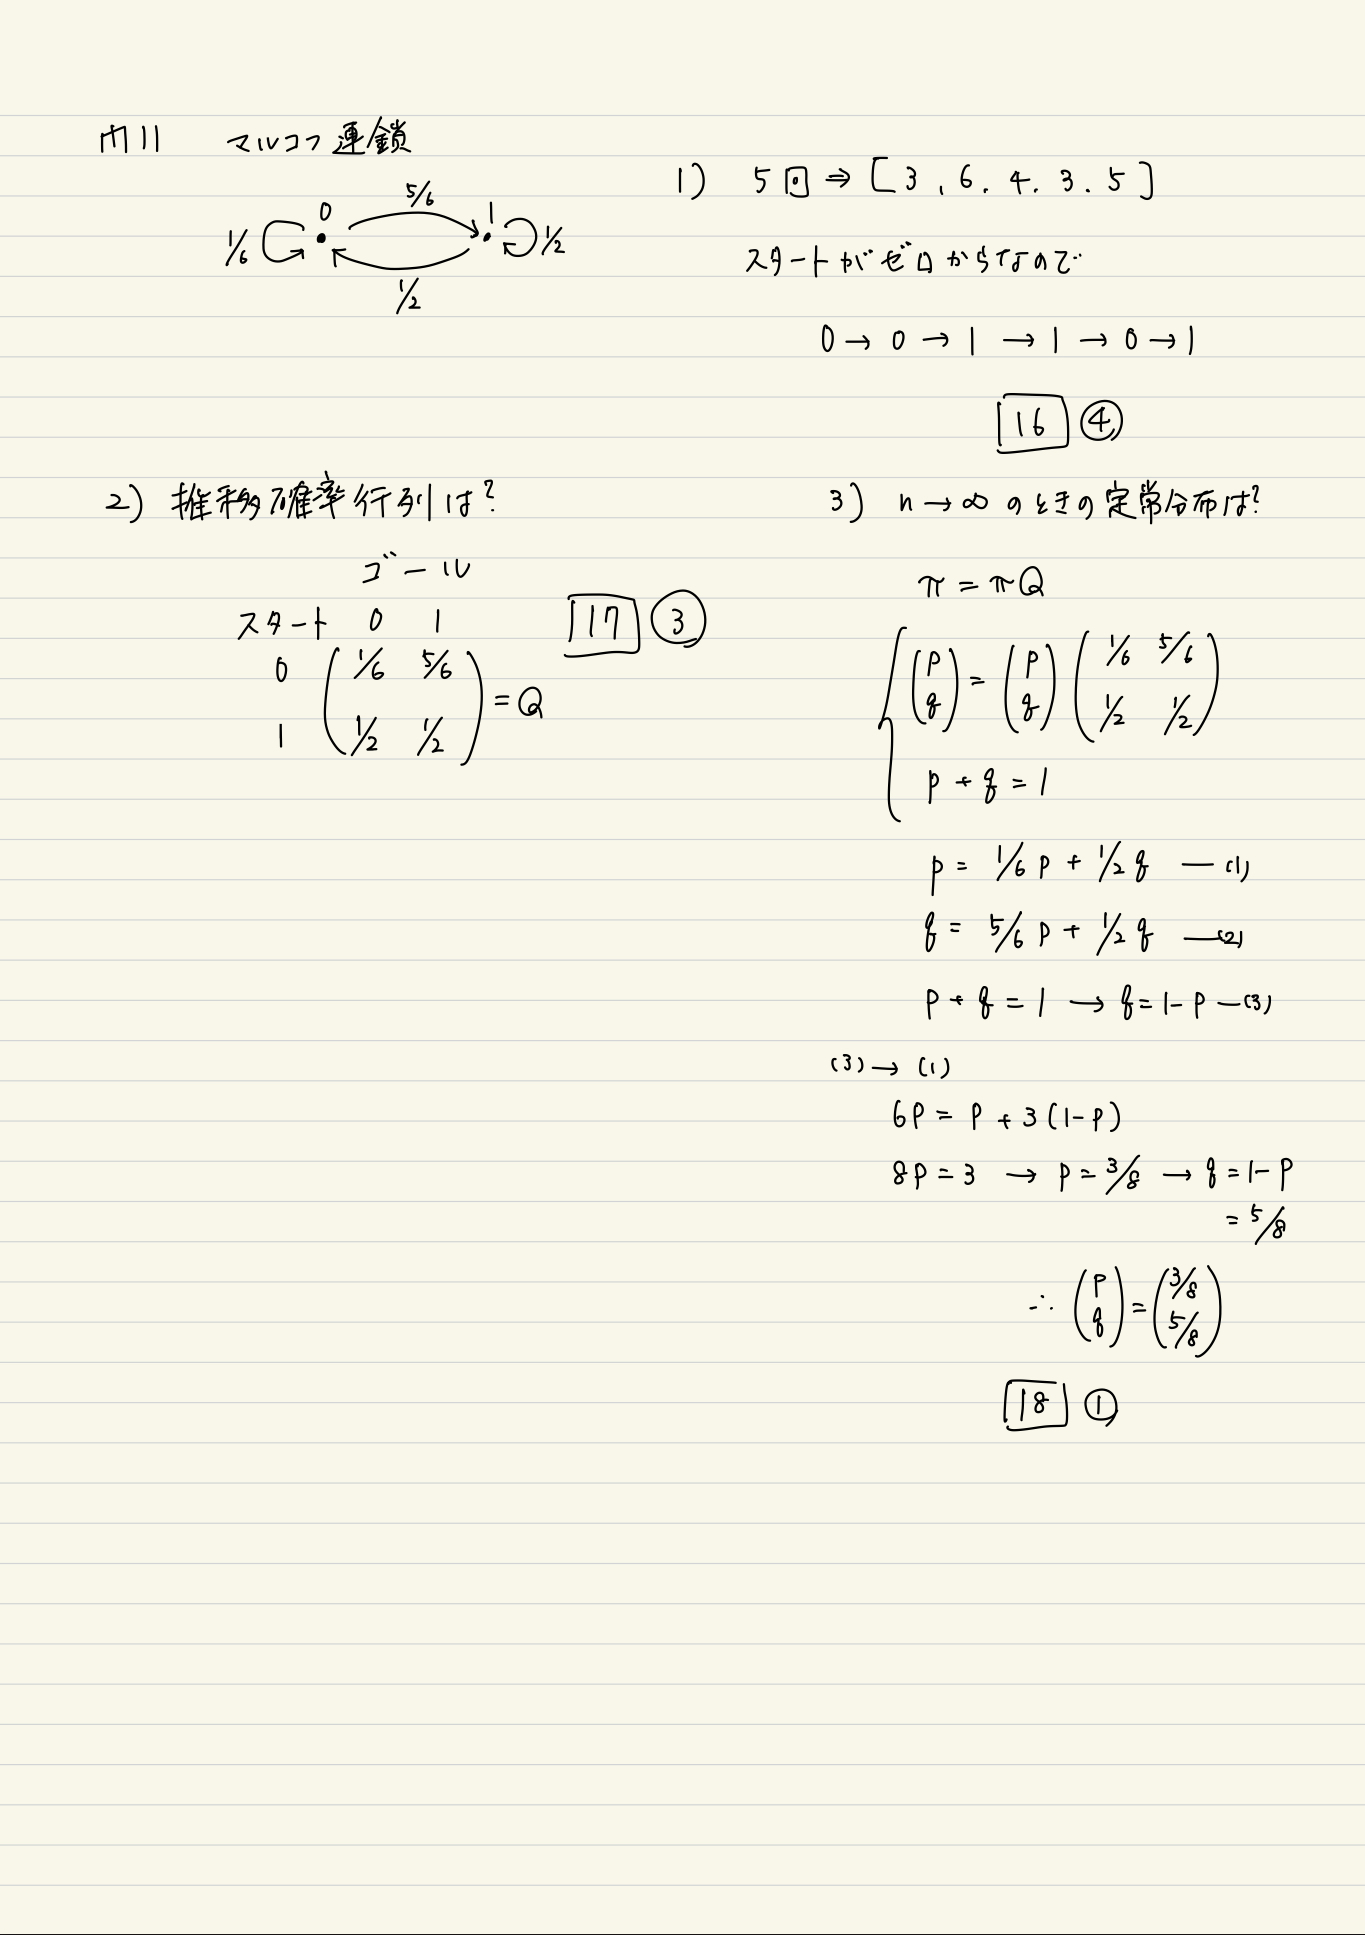 問11 マルコフ連鎖
0 5/6 1
1/6 1/2
1/2
1) 5回 ⇒ [3, 6. 4. 3. 5]
スタートがゼロからなので
0 → 0 → 1 → 1 → 0 → 1
16 ④
2) 推移確率行列は?
ゴール
スタート 0 1
0 1/6 5/6
1 1/2 1/2
= Q
17 ③
3) n → ∞ のときの定常分布は?
π = πQ
(p q) = (p q) (1/6 5/6 1/2 1/2)
p + q = 1
p = 1/6 p + 1/2 q — (1)
q = 5/6 p + 1/2 q — (2)
p + q = 1 → q = 1 - p — (3)
(3) → (1)
6p = p + 3(1-p)
8p = 3 → p = 3/8 → q = 1 - p
= 5/8
∴ (p q) = (3/8 5/8)
18 ①